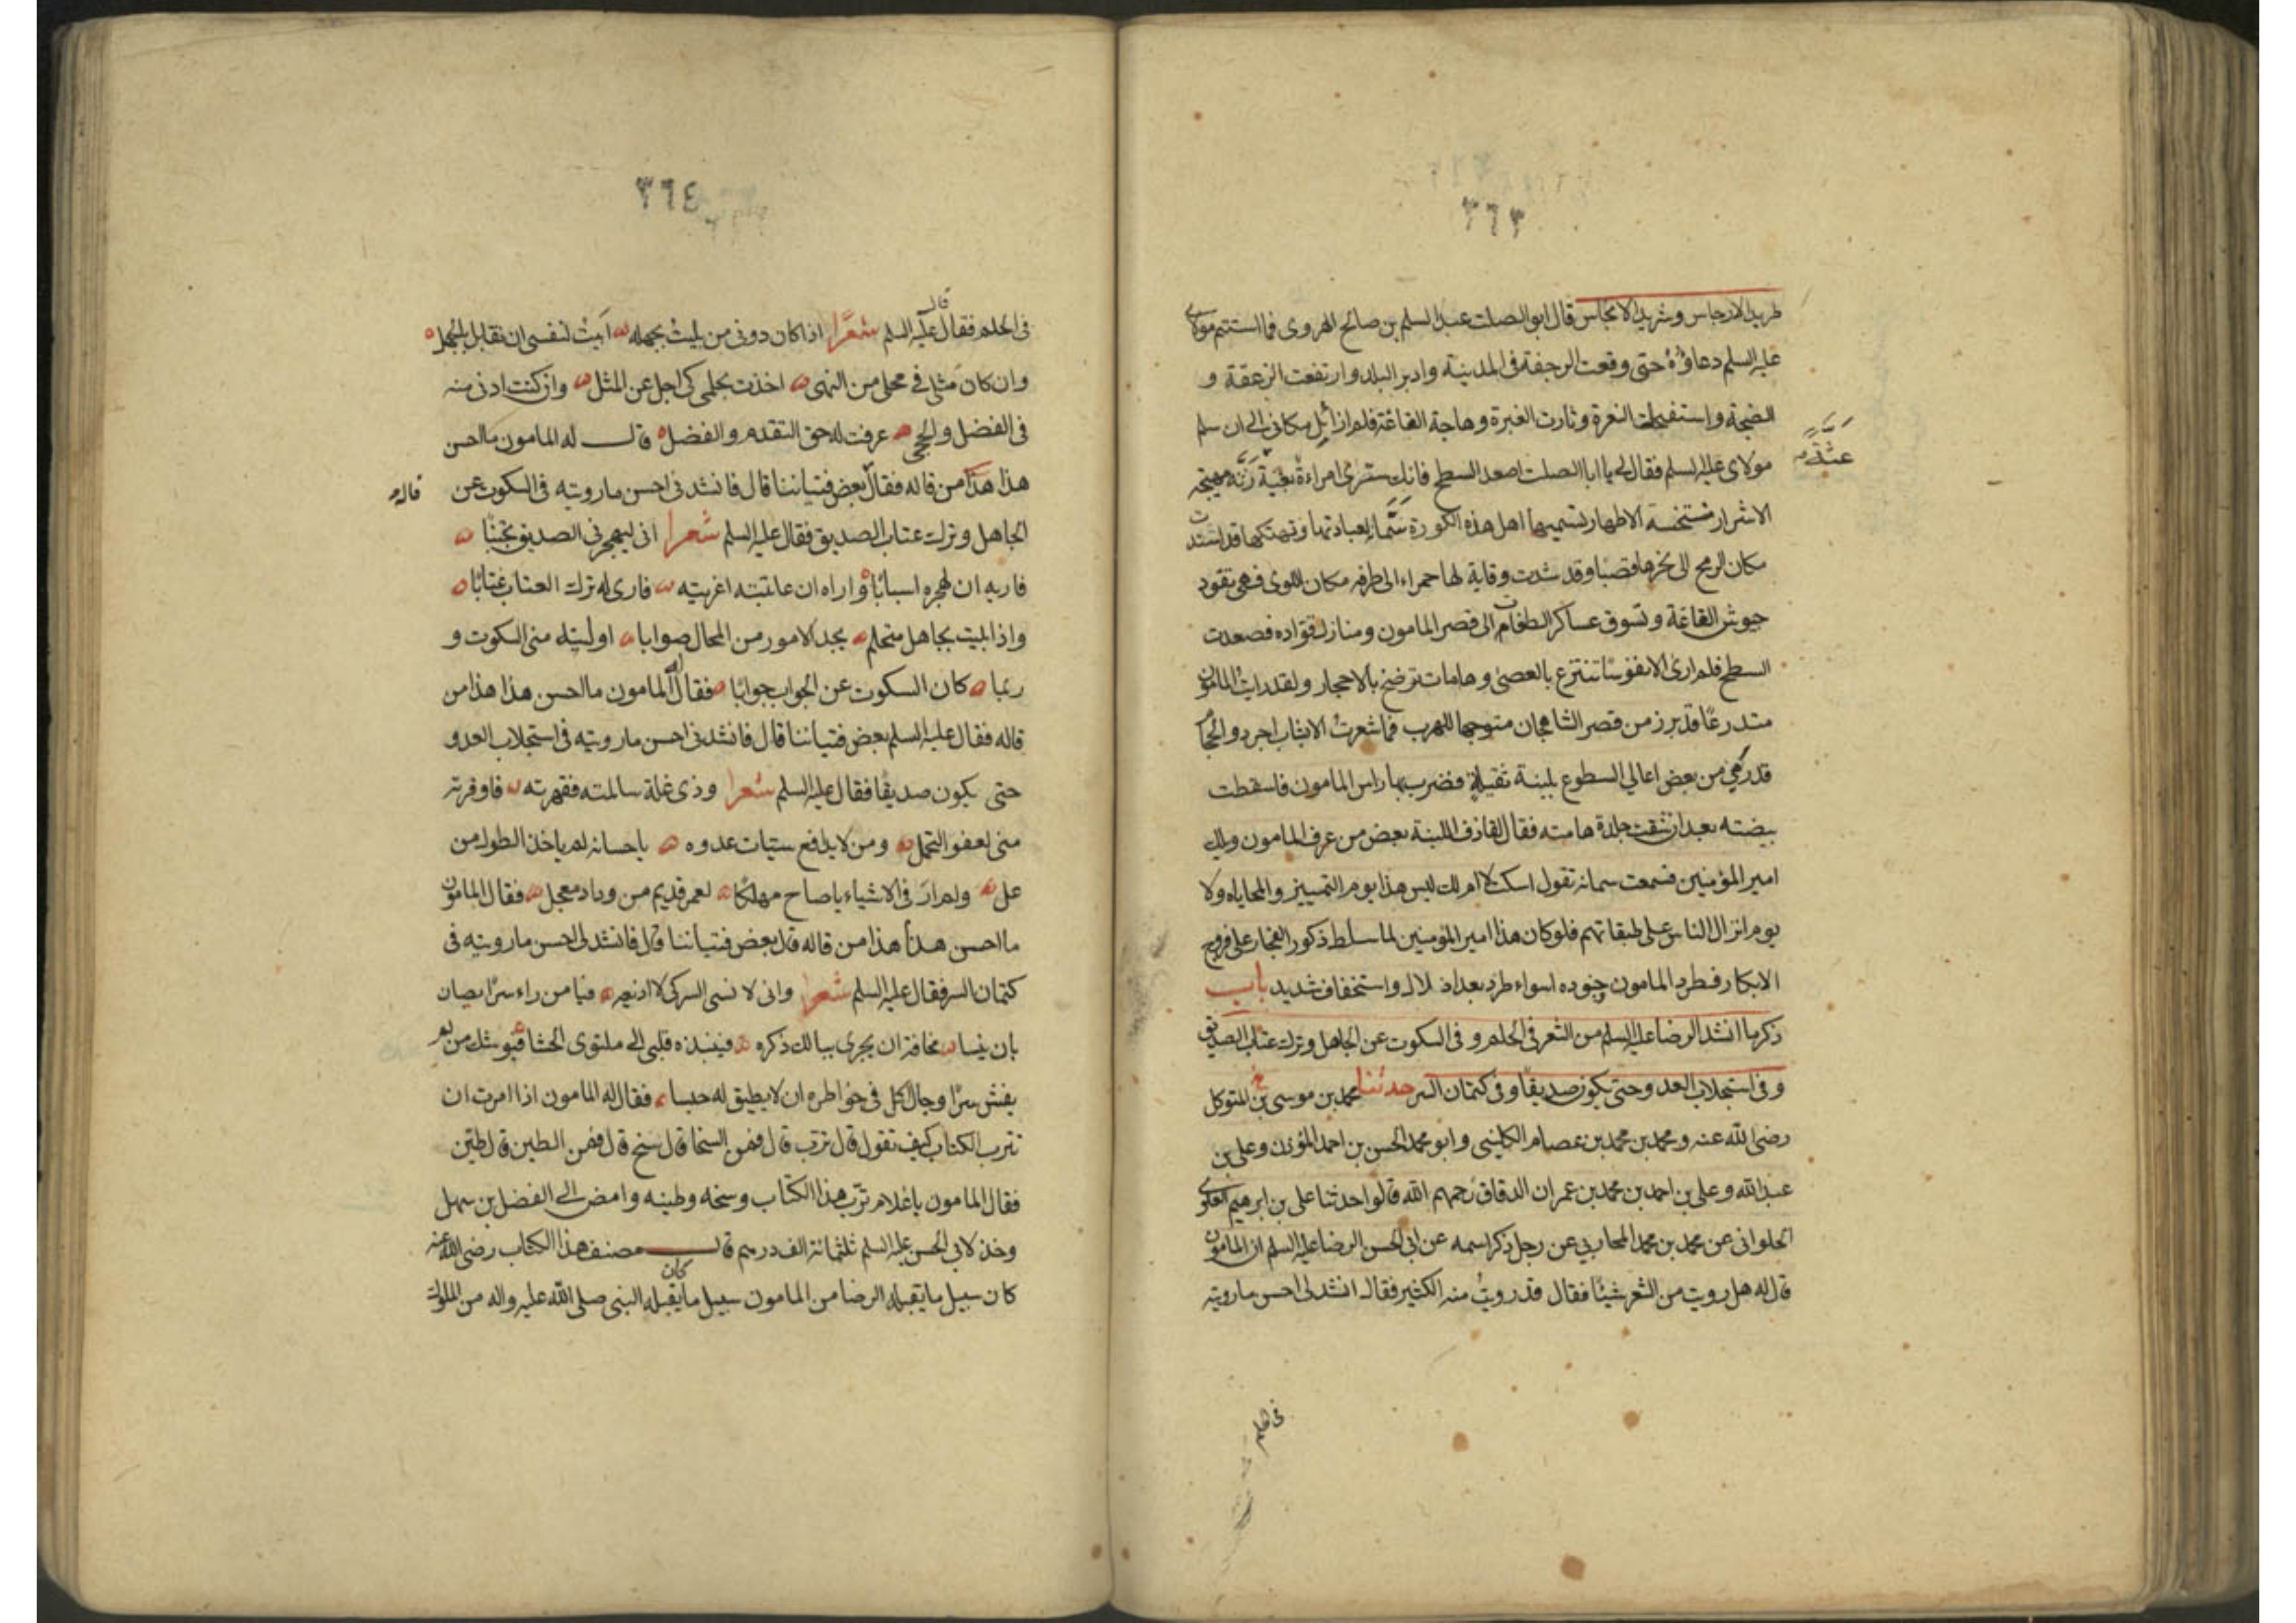 ٣٦٣
طريد الارجاس وشريد الانجاس قال ابو الصلت عبد السلم بن صالح الهروى فما استتم مولاى
عليه السلم دعاؤه حتى وقعت الرجفة فى المدينة وادبر البلد وارتفعت الزعقة و
الضجة واستفحلت النعرة وثارت الغبرة وهاجة القاعة فلم ازائل مكانى الى ان سلم
مولاى عليه السلم فقال لى يا ابا الصلت اصعد السطح فانك سترى امراءة بغية رثة مهيجة
عثة
الاشرار متسخة الاطهار تسميها اهل هذه الكورة سمانة لعبادتها وتهتكها قد اسندت
مكان الرمح الى نحرها قصبا وقد شدت وقاية لها حمراء الى طرفه مكان اللوى فهى تقود
جيوش القاعة وتسوق عساكر الطغام الى قصر المامون ومنازل قواده فصعدت
السطح فلم ارى الا نفوسًا تنتزع بالعصى وهامات ترضخ بالاحجار ولقد رايت المامون
متدرعًا قد برز من قصر الشاهجان متوجها للهرب فما شعرت الا بشاب اجرد والحجام
قد رمى من بعض اعالى السطوع بلبنة ثقيلة فضرب بها راس المامون فاسقطت
بيضته بعد ان شقت جلدة هامته فقال القاذف اللبنة بعض من عرف المامون ويلك
امير المؤمنين فسمعت سمانه تقول اسكت لا ام لك ليس هذا يوم التمييز والمحاياه ولا
يوم انزال الناس على طبقاتهم فلو كان هذا امير المؤمنين لما سلط ذكور الفجار على فروج
الابكار فطرد المامون وجنوده اسواء طرد بعد اذلال واستخفاف شديد باب
ذكر ما انشد الرضا عليه السلم من الشعر فى الحلم وفى السكوت عن الجاهل وترك عتاب الصديق
وفى استجلاب العدو حتى يكون صديقا وفى كتمان السر حدثنا محمد بن موسى بن المتوكل
رضى الله عنه ومحمد بن محمد بن عصام الكلينى وابو محمد الحسن بن احمد المؤدن وعلى بن
عبد الله وعلى بن احمد بن محمد بن عمران الدقاق رحمهم الله قالوا حدثنا على بن ابرهيم العلوى
الحلوانى عن محمد بن محمد المحاربى عن رجل ذكر اسمه عن ابى الحسن الرضا عليه السلم ان المامون
قال له هل رويت من الشعر شيئا فقال قد رويت منه الكثير فقال انشدنى احسن ما رويته
٣٦٤
قال
فى الحلم فقال عليه السلم شعرًا اذا كان دونى من بليت بجهله ابيت لنفسى ان تقابل بالجهل
وان كان مثلى فى محلى من النهى اخذت بحلمى كى اجل عن المثل وان كنت ادنى منه
فى الفضل والحجى عرفت له حق التقدم والفضل قال له المامون ما احسن
هذا هذا من قاله فقال بعض فتياننا قال فانشدنى احسن ما رويته فى السكوت عن
قاله
الجاهل وترك عتاب الصديق فقال عليه السلم شعرا انى ليهجرنى الصديق تجنبًا
فاريه ان لهجره اسبابًا واراه ان عاتبته اغريته فارى له ترك العتاب عتابًا
واذا بليت بجاهل متحلم يجد الامور من المحال صوابا اوليته منى السكوت و
ربما كان السكوت عن الجواب جوابًا فقال له المامون ما احسن هذا هذا من
قاله فقال عليه السلم بعض فتياننا قال فانشدنى احسن ما رويته فى استجلاب العدو
حتى يكون صديقًا فقال عليه السلم شعرا وذى غلة سالمته فقهرته فاوقرته
منى لعفو التحمل ومن لا يدافع سيئات عدوه باحسانه لم ياخذ الطول من
عل ولم ار فى الاشياء ياصاح مهلكًا لعمر قديم من وداد معجل فقال المامون
ما احسن هذا هذا من قاله قال بعض فتياننا قال فانشدنى احسن ما رويته فى
كتمان السر فقال عليه السلم شعرا وانى لا نسى السر كى لا اذيعه فيا من راء سرًا يصان
بان ينسا مخافة ان يجرى ببالك ذكره فينبذه قلبى الى ملتوى الحشا فيوشك من لم
يفش سرًا وجال كل فى خواطره ان لا يطيق له حبسا فقال له المامون اذا امرت ان
تترب الكتاب كيف تقول قال ترب قال فمن السحا قال سخ قال فمن الطين قال طين
فقال المامون ياغلام ترب هذا الكتاب وسخه وطينه وامض الى الفضل بن سهل
وخذ لابى الحسن عليه السلم ثلثمائة الف درهم قال مصنف هذا الكتاب رضى الله عنه
كان
كان سبيل ما يقبله الرضا من المامون سبيل ما يقبله النبى صلى الله عليه واله من الملوك